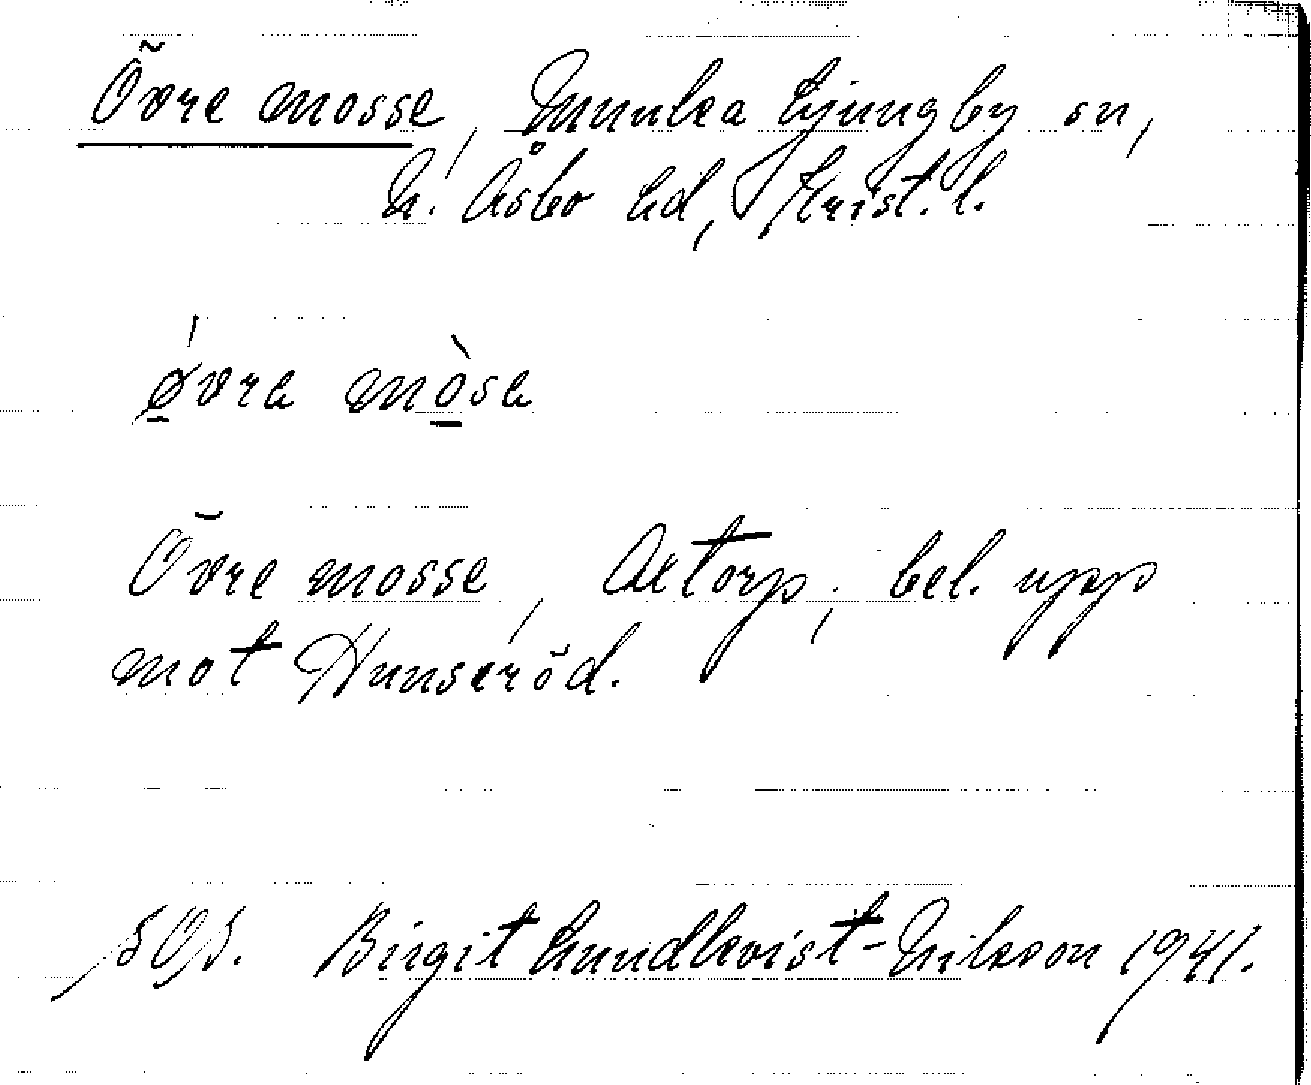 Övre mosse, Munka Ljungby sn,
N. Åsbo hd, Krist. l.
ǿvre mòse
Övre mosse, Axtorp, bel. upp
mot Hunseröd.
Birgit Lundkvist-Nilsson 1941.